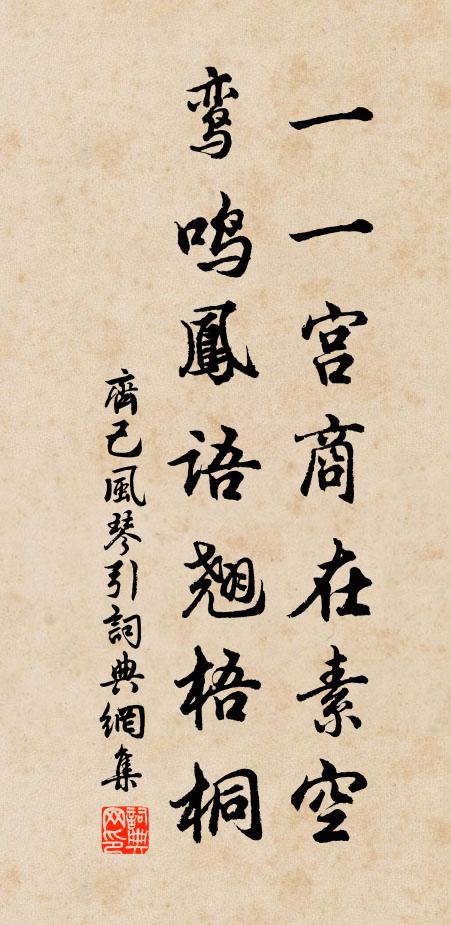 一一宫商在素空
鸾鸣鳳语翘梧桐
齊己風琴引詞典網集
詞典网印